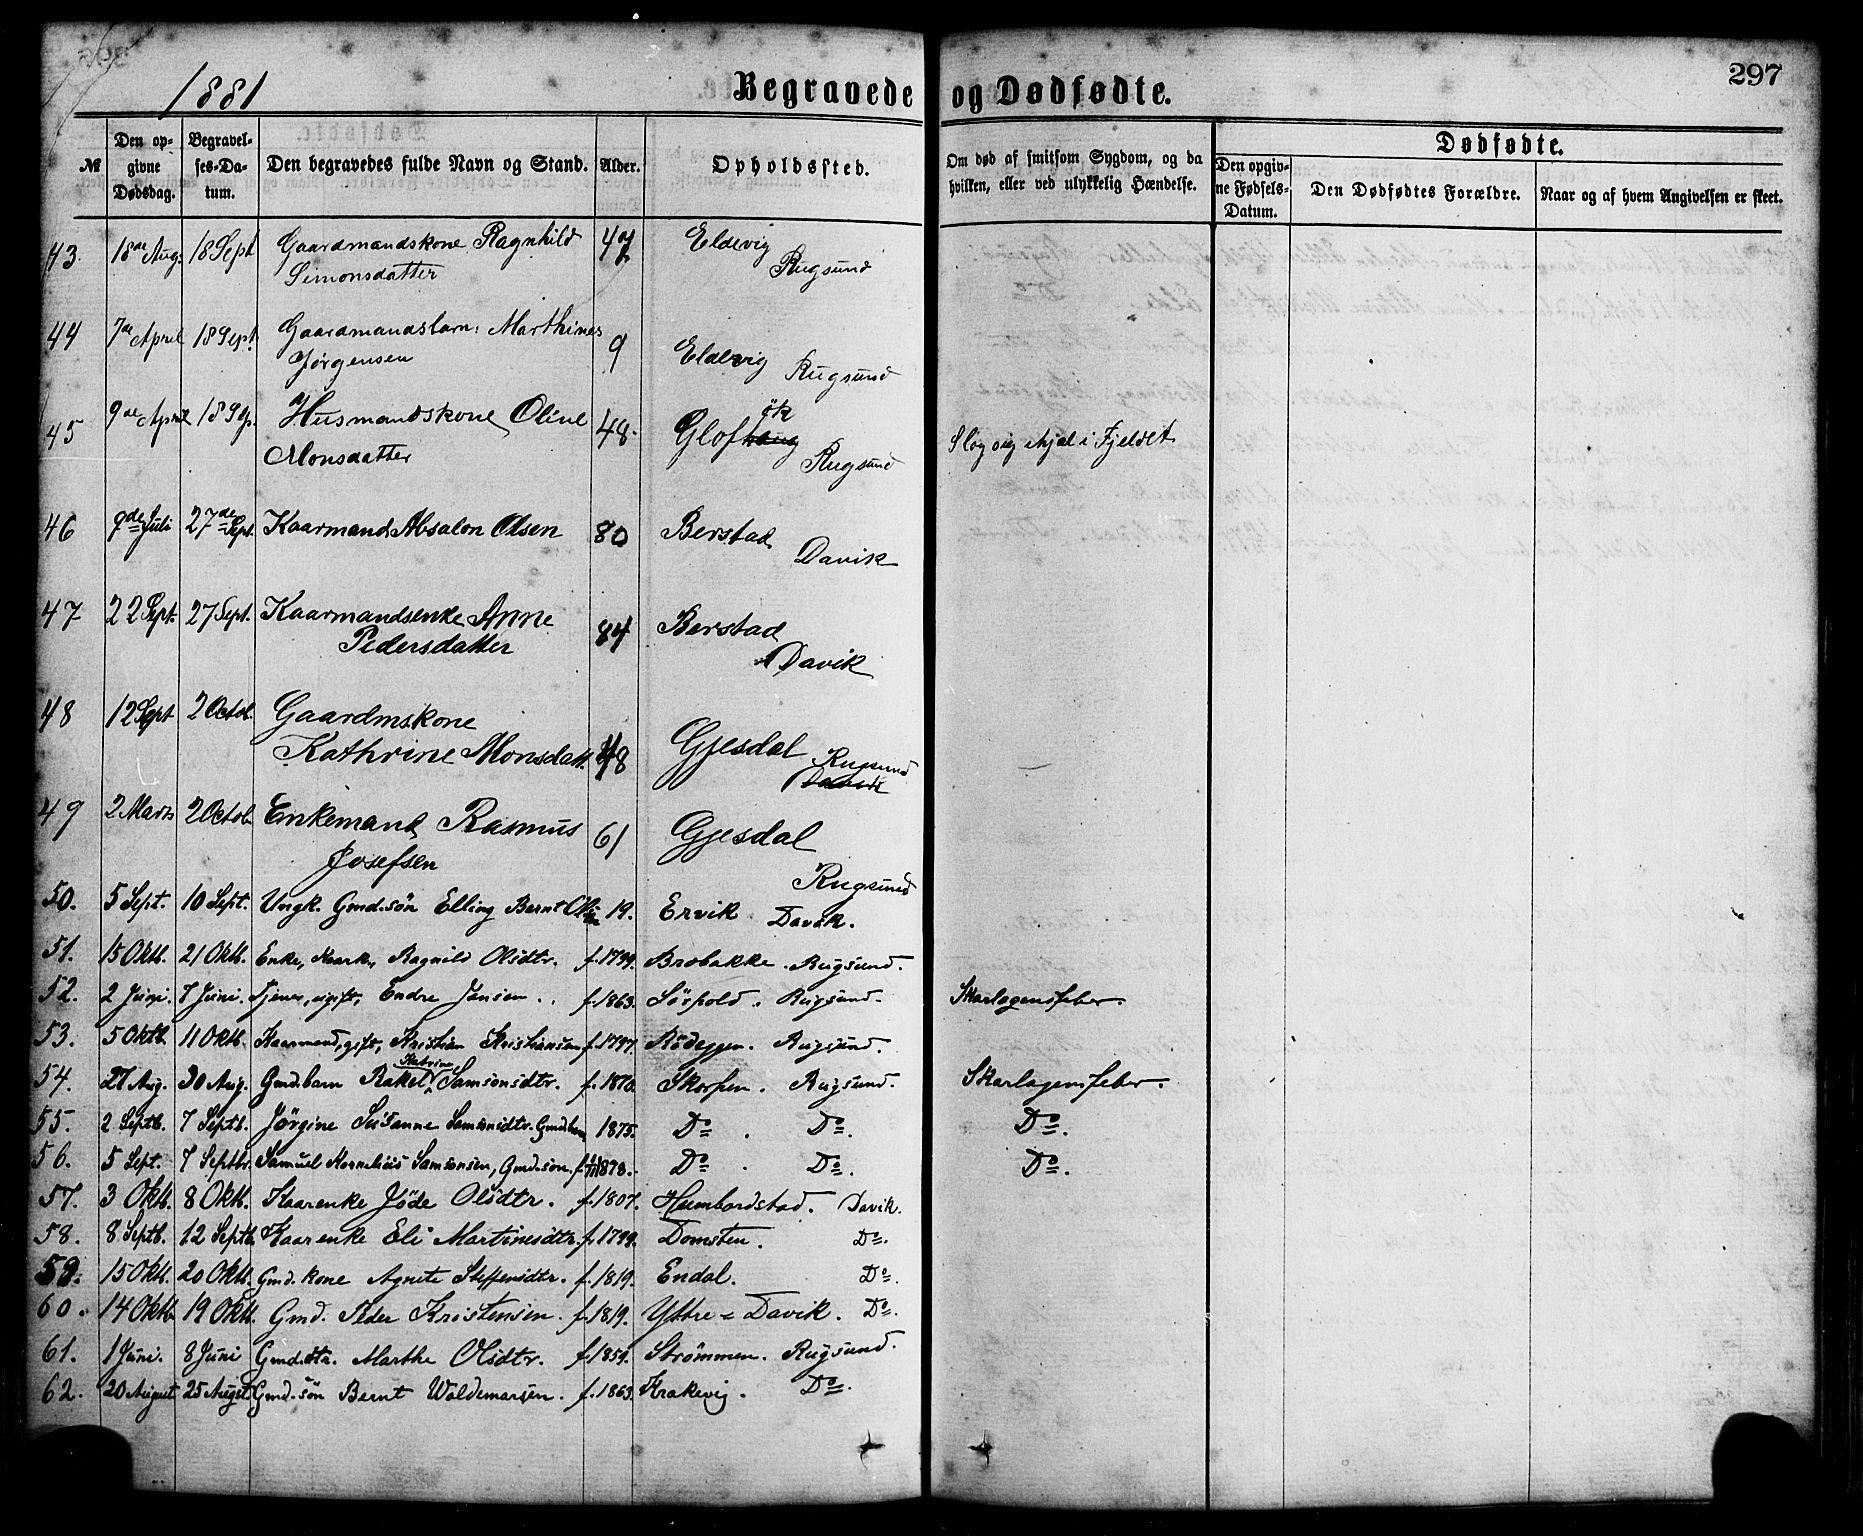 1881
Begravede og Dødfødte.
297
№
Den opgivne Dødsdag.
Begravelses-Datum.
Den begravedes fulde Navn og Stand.
Alder.
Opholdssted.
Om død af smitsom Sygdom, og da hvilken, eller ved ulykkelig Hændelse.
Dødfødte.
Den opgivne Fødsels-Datum.
Den Dødfødtes Forældre.
Naar og af hvem Angivelsen er skeet.
43. 18de Aug. 18 Sept Gaardmandskone Ragnhild Simonsdatter 47 Eldevig Rugsund
44 7de April 18 Sept. Gaardmandsbarn: Marthines Jørgensen 9 Eldevig Rugsund
45 9de April 18 Sp. Husmandskone Oline Monsdatter 48. Glofhaug ök Rugsund Slog sig ihjel i Fjeldet
46 9de Juli 27de Sept. Kaarmand Absalon Olsen 80 Berstad Davik
47 22 Sept. 27 Sept. Kaarmandsenke Anne Pedersdatter 84 Berstad Davik
48 12 Sept 2 Octob. Gaardmskone Kathrine Monsdatt. 48 Gjesdal Rugsund Davik
49 2 Marts 2 Octob. Enkemand Rasmus Josefsen 61 Gjesdal Rugsund
50. 5 Sept. 10 Sept. Ungk. Gmd.søn Elling Bernt Olsen 19. Ervik Davik.
51. 15 Oktb. 21 Oktb. Enke, Kaark., Ragnild Olsdtr. f. 1799. Brobakke. Rugsund.
52. 2 Juni. 7 Juni. Tjener, ugift, Endre Jansen.. f. 1863. Sørpold. Rugsund. Skarlagensfeber.
53. 5 Oktb. 11 Oktb. Kaarmand, gift, Kristian Kristiansen f. 1797. Rødeggen. Rugsund.
54. 27 Aug. 30 Aug. Gmd.barn Rakel Katrine Samsonsdtr. f. 1870. Skorpen. Rugsund. Skarlagensfeber.
55. 2 Septb. 7 Septb. Jörgine Susanne Samsonsdtr. Gmd.barn 1875. Do. Do. Do.
56. 5 Sept. 7 Septbr. Samuel Kornelius Samsonsen, Gmd.søn. f. 1878. Do. Do. Do.
57. 3 Oktb. 8 Oktb. Kaarenke Jøde Olsdtr. f. 1807. Humbordstad. Davik.
58. 8 Septb. 12 Septb. Kaarenke Eli Martinusdtr. f. 1799. Domsten. Do.
59. 15 Oktb. 20 Oktb. Gmd.kone Agnete Steffensdtr. f. 1819. Endal. Do.
60. 14 Oktb 19 Oktb. Gmd. Peder Kristensen. f. 1819. Yttre-Davik. Do.
61. 1 Juni. 8 Juni Gmd.dtr. Marthe Olsdtr. f. 1859. Strömmen. Rugsund.
62. 20 August 25 August Gmd.søn Bernt Woldemarsen. f. 1863. Krakevig. Do.